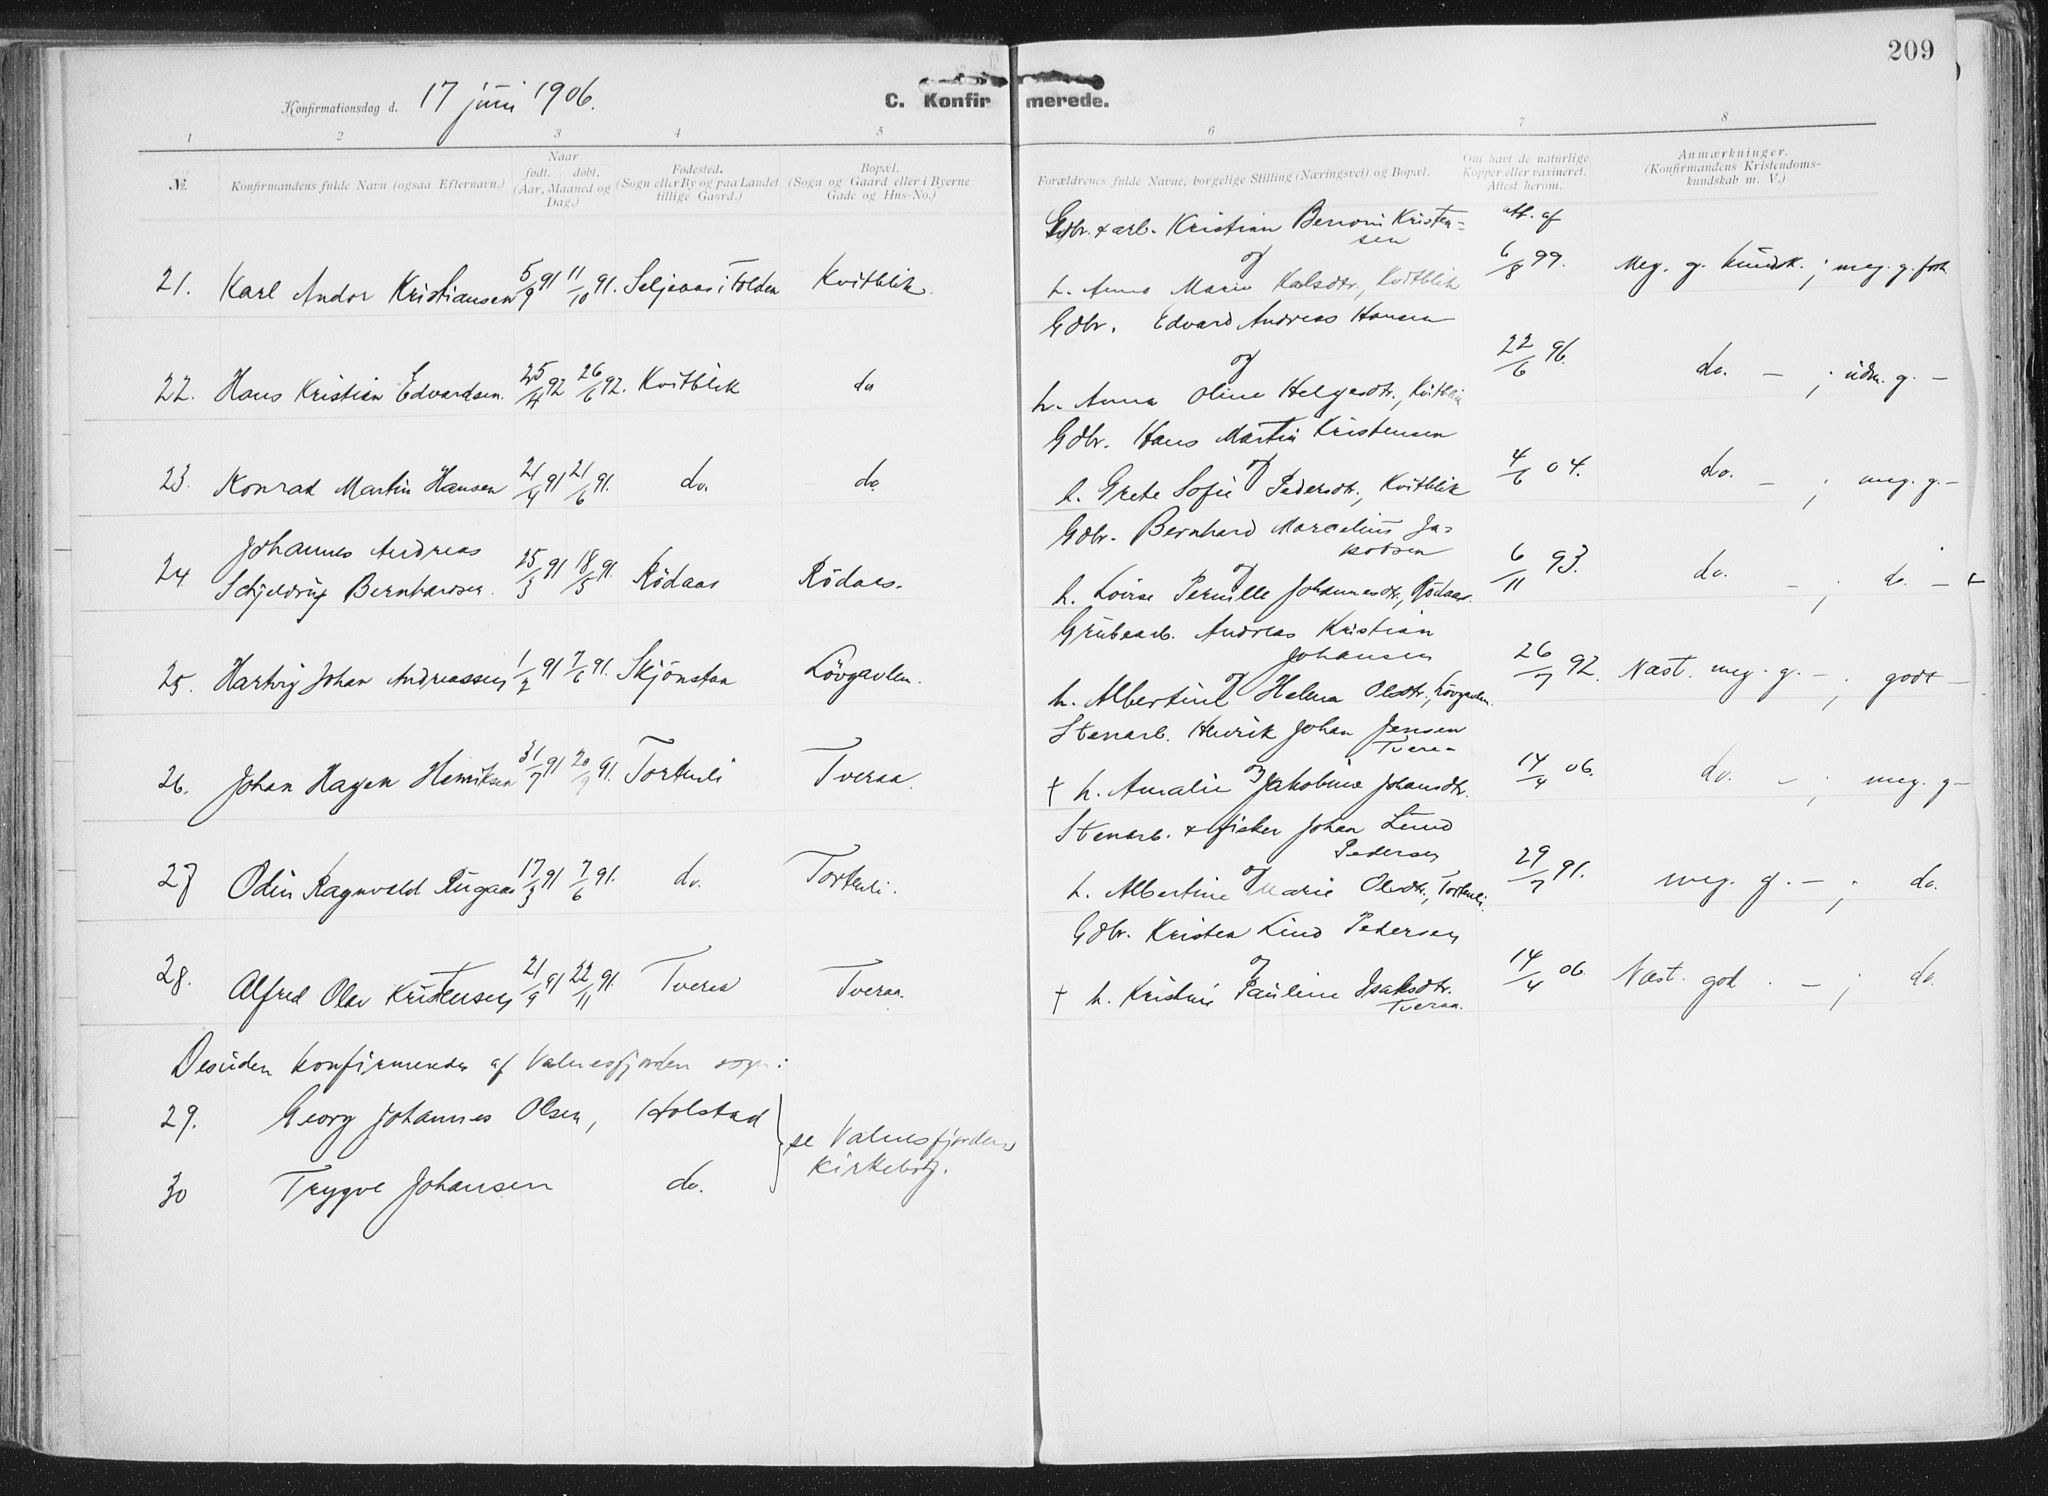 209
Konfirmationsdag d. 17 juni 1906.
C. Konfirmerede.
1 2 3 4 5 6 7 8
№.
Konfirmandens fulde Navn (ogsaa Efternavn.)
Naar født. døbt. (Aar, Maaned og Dag.)
Fødested. (Sogn eller By og paa Landet tillige Gaard.)
Bopæl. (Sogn og Gaard eller i Byerne Gade og Hus-No.)
Forældrenes fulde Navne, borgelige Stilling (Næringsvei) og Bopæl.
Om havt de naturlige Kopper eller vaxineret. Attest herom.
Anmærkninger. (Konfirmandens Kristendomskundskab m. V.)
Gdbr. & arb. Kristian Benoni Kristen= att. af
sen
og
21. Karl Andor Kristiansen 5/9 91 11/10 91. Seljeaas i Folden Kvitblik. h. Anna Marie Karlsdtr., Kvitblik 6/8 99. Meg. g. kundsk. ; meg. g. forh
Gdbr. Edvard Andreas Hansen
og
22. Hans Kristian Edvardsen. 25/4 92 26/6 92. Kvitblik do h. Anna Oline Helgesdtr., Kvitblik 22/6 96. do. — ; udm. g. —
Gdbr. Hans Martin Kristensen
og
23. Konrad Martin Hansen 21/4 91 21/6 91. do. do. h. Grete Sofie Pedersdtr., Kvitblik 4/6 04. do. — ; meg. g. —
Gdbr. Bernhard Marcelius Ja=
kobsen
og
24 Johannes Andreas
Schjeldrup Bernhardsen. 25/3 91 18/5 91. Rödaas Rödaas. h. Lovise Pernille Johannesdtr., Rödaas. 6/11 93. do. — ; do. —
Grubearb. Andreas Kristian
Johansen
og
25. Hartvig Johan Andreassen 1/2 91 7/6 91. Skjönstaa Lövgavlen. h. Albertine Helena Olsdtr., Lövgavlen. 26/7 92. Næst. meg. g. — ; godt —
Stenarb. Henrik Johan Jensen
Tveraa
og
26. Johan Hagen Henriksen 31/7 91 20/9 91. Tortenli Tveraa. † h. Amalie Jakobine Johansdtr. 14/4 06. do. — ; meg. g —
Stenarb. & fisker Johan Lund
Pedersen
og
27 Odin Ragnvald Rugaas 17/3 91 7/6 91. do. Tortenli. h. Albertine Marie Olsdtr., Tortenli. 29/7 91. meg. g. — ; do.
Gdbr. Kristen Lund Pedersen
og
28. Alfred Olav Kristensen 21/9 91 22/11 91. Tveraa Tveraa. † h. Kristine Pauline Isaksdtr. 14/4 06 Næst. god . — ; do.
Tveraa.
Desuden konfirmeredes af Valnesfjorden sogn:
29. Georg Johannes Olsen, Holstad
se Valnesfjordens
kirkebog.
30 Trygve Johansen do.